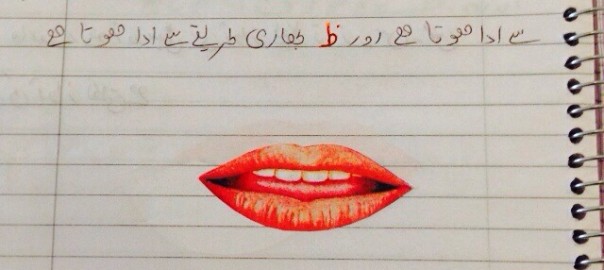 سے ادا ھوتا ھے اور ظ بھاری طریقے سے ادا ھوتا ھے